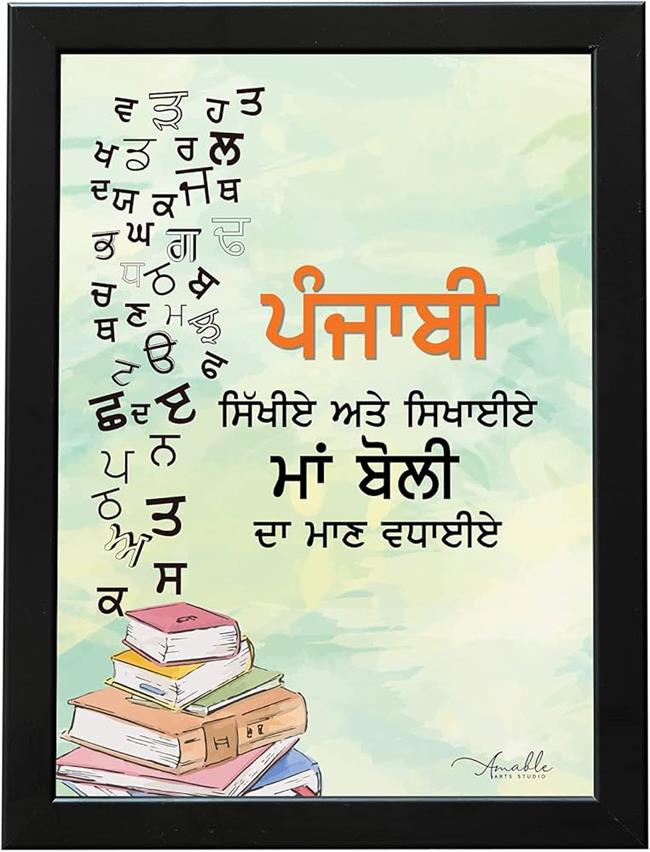 ਵ ੜ ਹ ਤ
ਖ ਡ ਰ ਲ
ਦ ਯ ਕ ਜ ਥ
ਭ ਘ ਗ ਢ
ਧ ਠ ਬ
ਚ ਥ ਣ ਮ
ੳ ਫ
ਛ ਦ ੲ
ਪ ਨ
ਠ ਤ
ਅ
ਕ ਸ
ਪੰਜਾਬੀ
ਸਿੱਖੀਏ ਅਤੇ ਸਿਖਾਈਏ
ਮਾਂ ਬੋਲੀ
ਦਾ ਮਾਣ ਵਧਾਈਏ
Amable
ARTS STUDIO